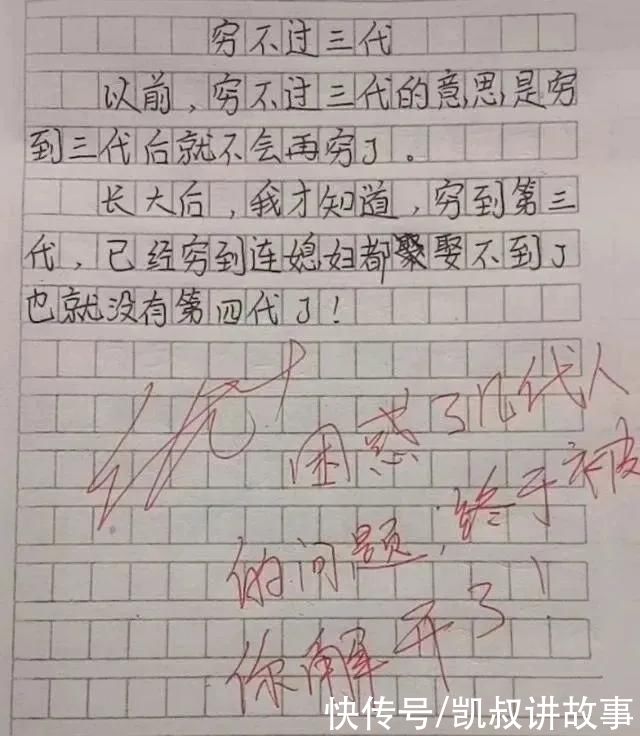 穷不过三代
以前，穷不过三代的意思是穷
到三代后就不会再穷了。
长大后，我才知道，穷到第三
代，已经穷到连媳妇都娶不到了
也就没有第四代了！
优+
困惑了几代人
的问题，终于被
你解开了！
快传号/凯叔讲故事